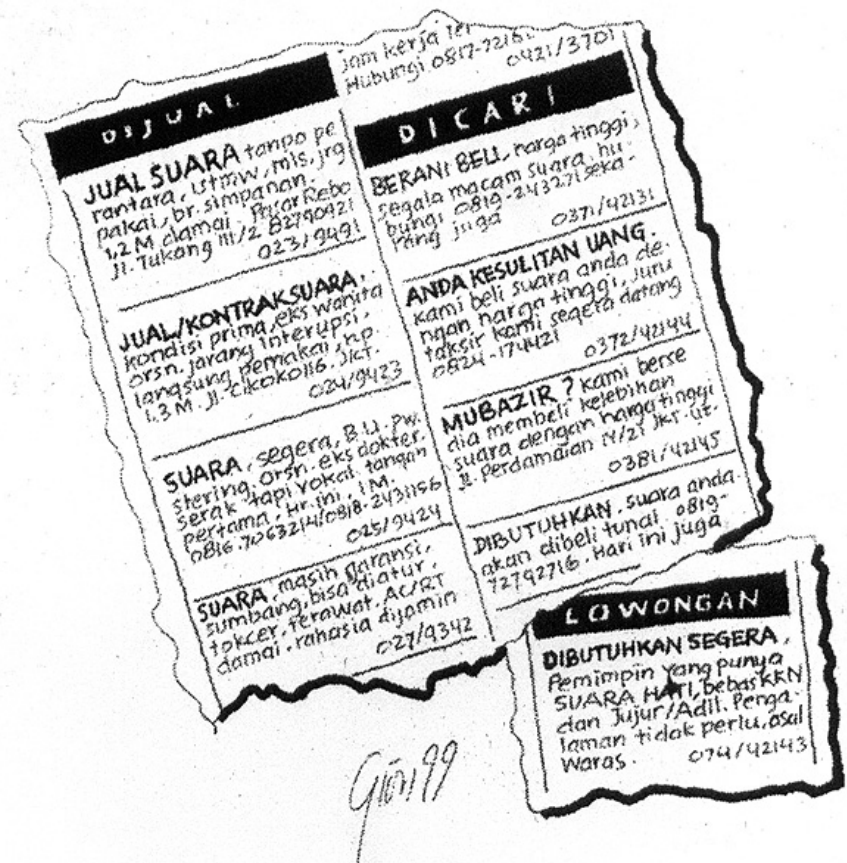 DIJUAL
JUAL SUARA tanpa pe
rantara, istmw, mls, jrg
pakai, br. simpanan.
1,2 M damai. Pasar Rebo
Jl. Tukang III/2 82790921
023/9491
JUAL/KONTRAK SUARA,
kondisi prima, eks wanita
orsn. jarang interupsi,
langsung pemakai, np.
1.3 M. Jl. Cikoko 116. Jkt.
024/9423
SUARA, segera, B.U. Pw.
stering. orsn. eks dokter.
serak tapi vokal. tangan
pertama. Hr. ini, 1 M.
0816.7063214/0818-2431156
025/9424
SUARA, masih garansi,
sumbang, bisa diatur,
tokcer, terawat. AC/RT
damai. rahasia dijamin
027/9342
jam kerja
Hubungi 0817-7216
0421/3701
DICARI
BERANI BELI, harga tinggi,
segala macam suara, hu-
bungi 0819-243271 seka-
rang juga
0371/42131
ANDA KESULITAN UANG.
kami beli suara anda de-
ngan harga tinggi, juru
taksir kami segera datang
0824-174421
0372/42144
MUBAZIR? kami berse
dia membeli kelebihan
suara dengan harga tinggi
Jl. Perdamaian IV/21 Jkt-ut.
0381/42145
DIBUTUHKAN. suara anda
akan dibeli tunai. 0819-
72792716. Hari ini juga
LOWONGAN
DIBUTUHKAN SEGERA,
Pemimpin yang punya
SUARA HATI, bebas KKN
dan Jujur/Adil. Penga-
laman tidak perlu, asal
Waras.
074/42143
99